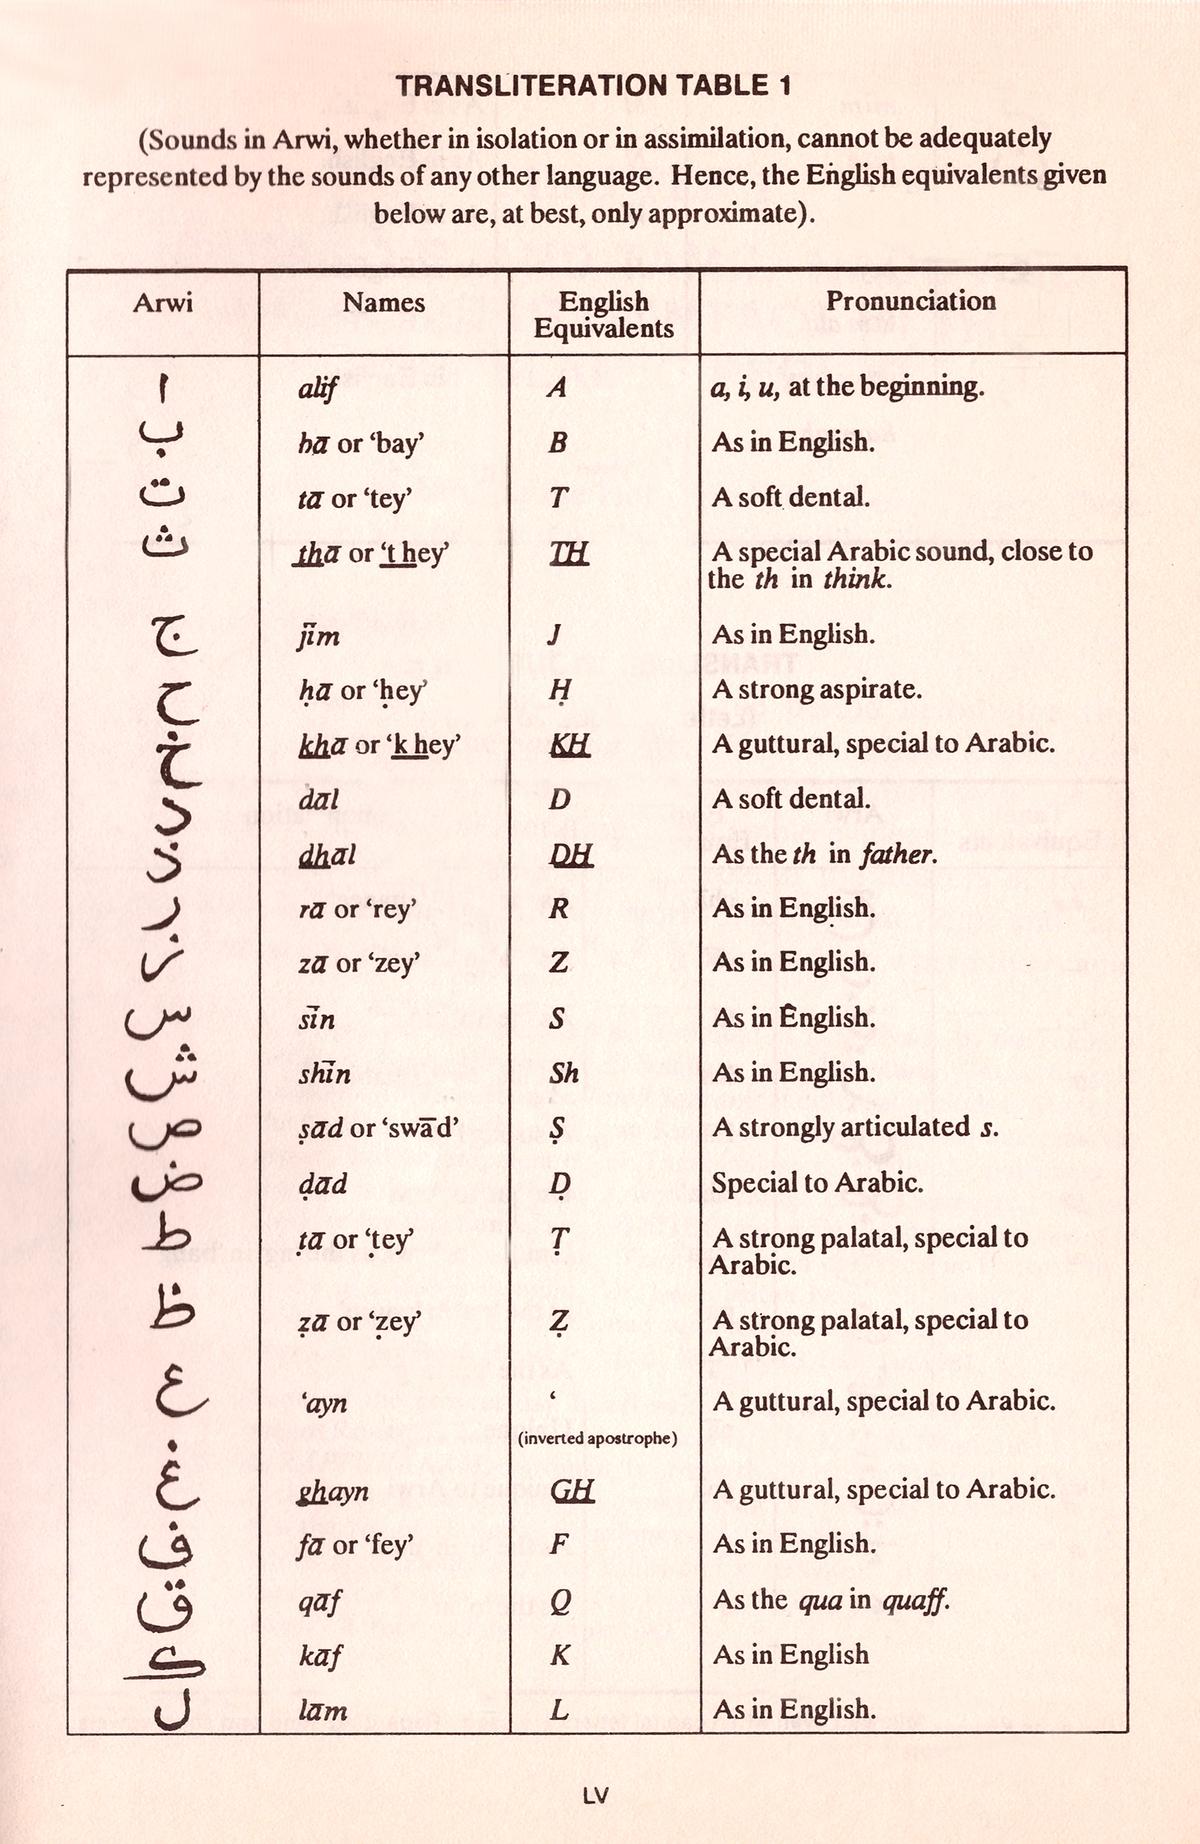 TRANSLITERATION TABLE 1
(Sounds in Arwi, whether in isolation or in assimilation, cannot be adequately
represented by the sounds of any other language. Hence, the English equivalents given
below are, at best, only approximate).
Arwi Names English Equivalents Pronunciation
ا alif A a, i, u, at the beginning.
ب bā or ‘bay’ B As in English.
ت tā or ‘tey’ T A soft dental.
ث thā or ‘t hey’ TH A special Arabic sound, close to
the th in think.
ج jīm J As in English.
ح ḥā or ‘ḥey’ Ḥ A strong aspirate.
خ khā or ‘k hey’ KH A guttural, special to Arabic.
د dāl D A soft dental.
ذ dhāl DH As the th in father.
ر rā or ‘rey’ R As in English.
ز zā or ‘zey’ Z As in English.
س sīn S As in English.
ش shīn Sh As in English.
ص ṣād or ‘swād’ Ṣ A strongly articulated s.
ض ḍād Ḍ Special to Arabic.
ط ṭā or ‘ṭey’ Ṭ A strong palatal, special to
Arabic.
ظ ẓā or ‘ẓey’ Ẓ A strong palatal, special to
Arabic.
ع ‘ayn ‘ A guttural, special to Arabic.
(inverted apostrophe)
غ ghayn GH A guttural, special to Arabic.
ف fā or ‘fey’ F As in English.
ق qāf Q As the qua in quaff.
ك kāf K As in English
ل lām L As in English.
LV